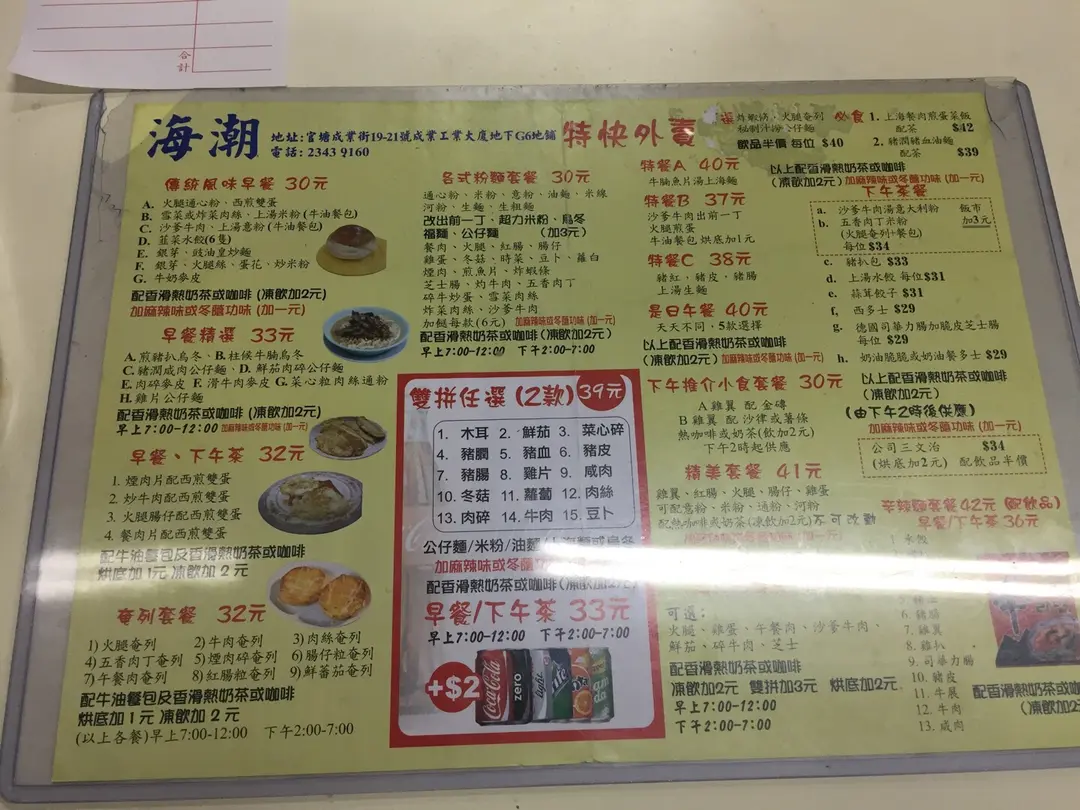 合計
海潮
地址:官塘成業街19-21號成業工業大廈地下G6地舖
電話: 2343 9160
特快外賣
傳統風味早餐 30元
A. 火腿通心粉、西煎雙蛋
B. 雪菜或炸菜肉絲、上湯米粉(牛油餐包)
C. 沙爹牛肉、上湯意粉(牛油餐包)
D. 韮菜水餃(6隻)
E. 銀芽、豉油皇炒麵
F. 銀芽、火腿絲、蛋花、炒米粉
G. 牛奶麥皮
配香滑熱奶茶或咖啡 (凍飲加2元)
加麻辣味或冬蔭功味 (加一元)
早餐精選 33元
A. 煎豬扒烏冬、B. 柱候牛腩烏冬
C. 豬潤咸肉公仔麵、D. 鮮茄肉碎公仔麵
E. 肉碎麥皮 F. 滑牛肉麥皮 G. 菜心粒肉絲通粉
H. 雞片公仔麵
配香滑熱奶茶或咖啡 (凍飲加2元)
早上7:00-12:00 加麻辣味或冬蔭功味 (加一元)
早餐、下午茶 32元
1. 煙肉片配西煎雙蛋
2. 炒牛肉配西煎雙蛋
3. 火腿腸仔配西煎雙蛋
4. 餐肉片配西煎雙蛋
配牛油餐包及香滑熱奶茶或咖啡
烘底加 1元 凍飲加 2 元
奄列套餐 32元
1) 火腿奄列 2) 牛肉奄列 3) 肉絲奄列
4) 五香肉丁奄列 5) 煙肉碎奄列 6) 腸仔粒奄列
7) 午餐肉奄列 8) 紅腸粒奄列 9) 鮮蕃茄奄列
配牛油餐包及香滑熱奶茶或咖啡
烘底加 1 元 凍飲加 2 元
(以上各餐)早上7:00-12:00 下午2:00-7:00
各式粉麵套餐 30元
通心粉、米粉、意粉、油麵、米線
河粉、生麵、生粗麵
改出前一丁、超力米粉、烏冬
福麵、公仔麵 (加3元)
餐肉、火腿、紅腸、腸仔
雞蛋、冬菇、時菜、豆卜、蘿白
煙肉、煎魚片、炸蝦條
芝士腸、灼牛肉、五香肉丁
碎牛炒蛋、雪菜肉絲
炸菜肉絲、沙爹牛肉
加餸每款(6元) 加麻辣味或冬蔭功味 (加一元)
配香滑熱奶茶或咖啡(凍飲加2元)
早上7:00-12:00 下午2:00-7:00
雙拼任選 (2款) 39元
1. 木耳 2. 鮮茄 3. 菜心碎
4. 豬膶 5. 豬血 6. 豬皮
7. 豬腸 8. 雞片 9. 咸肉
10. 冬菇 11. 蘿蔔 12. 肉絲
13. 肉碎 14. 牛肉 15. 豆卜
公仔麵/米粉/油麵/上海麵或烏冬
加麻辣味或冬蔭功味
配香滑熱奶茶或咖啡(凍飲加2元)
早餐/下午茶 33元
早上7:00-12:00 下午2:00-7:00
+$2
Coca-Cola
zero
light
特餐A 40元
牛腩魚片湯上海麵
特餐B 37元
沙爹牛肉出前一丁
火腿煎蛋
牛油餐包 烘底加1元
特餐C 38元
豬紅、豬皮、豬腸
上湯生麵
是日午餐 40元
天天不同,5款選擇
以上配香滑熱奶茶或咖啡
(凍飲加2元) 加麻辣味或冬蔭功味 (加一元)
下午推介小食套餐 30元
A 雞翼 配 金磚
B 雞翼 配 沙律或薯條
熱咖啡或奶茶(飲加2元)
下午2時起供應
精美套餐 41元
雞翼、紅腸、火腿、腸仔、雞蛋
可配意粉、米粉、通粉、河粉
配熱咖啡或奶茶(凍飲加2元)不可改動
可選:
火腿、雞蛋、午餐肉、沙爹牛肉、
鮮茄、碎牛肉、芝士
配香滑熱奶茶或咖啡
凍飲加2元 雙拼加3元 烘底加2元
早上7:00-12:00
下午2:00-7:00
炸蝦條、火腿奄列
秘制汁撈公仔麵
飲品半價 每位 $40
必食 1. 上海餐肉煎蛋菜飯
配茶 $42
2. 豬潤豬血油麵
配茶 $39
以上配香滑熱奶茶或咖啡
(凍飲加2元) 加麻辣味或冬蔭功味 (加一元)
下午茶餐
a. 沙爹牛肉湯意大利粉 飯市
b. 五香肉丁米粉 加3元
(火腿奄列+餐包)
每位$34
c. 豬扒包 $33
d. 上湯水餃 每位$31
e. 蒜茸餃子 $31
f. 西多士 $29
g. 德國司華力腸加脆皮芝士腸
每位 $29
h. 奶油脆脆或奶油餐多士 $29
以上配香滑熱奶茶或咖啡
(凍飲加2元)
(由下午2時後供應)
加麻辣味或冬蔭功味 (加一元)
公司三文治 $34
(烘底加2元) 配飲品半價
辛辣麵套餐42元 (配飲品)
早餐/下午茶 36元
1. 水餃
6. 豬腸
7. 雞翼
8. 雞扒
9. 司華力腸
10. 豬皮
11. 牛展
12. 牛肉
13. 咸肉
配香滑熱奶茶或咖啡
(凍飲加2